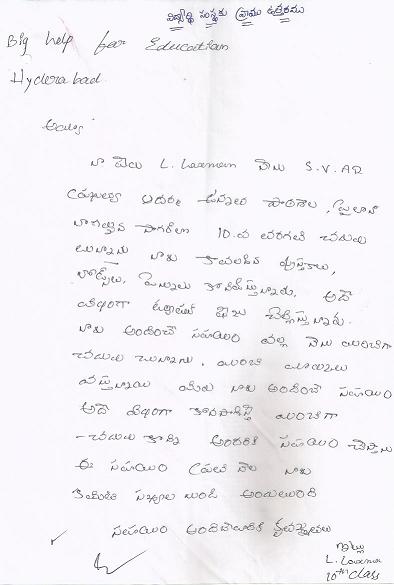 విద్యార్థి సంస్థకు వ్రాయు ఉత్తరము
Big help for Education
Hyderabad
అయ్యా
నా పేరు L. Laxman నేను S.V.AR
ఉన్నత పాఠశాల, పైలాన్
నాగార్జున సాగర్‌లో 10.వ తరగతి చదువు
చున్నాను నాకు కావలసిన పుస్తకాలు,
నోట్స్‌లు, పెన్నులు కొనిస్తున్నారు. అదే
విధంగా ట్యూషన్ ఫీజు చెల్లిస్తున్నారు.
నాకు అందించే సహాయం వల్ల నేను మంచిగా
చదువు చున్నాను. మంచి మార్కులు
వస్తున్నాయి మీరు నాకు అందించే సహాయం
అదే విధంగా కొనసాగిస్తే మంచిగా
చదువు కొని అందరికి సహాయం చేస్తాను
ఈ సహాయం ప్రతి నెల నాకు
కమిటి సభ్యుల నుండి అందుతుంది
సహాయం అందించినందుకు కృతజ్ఞతలు
ఇట్లు
L. Laxman
10th class